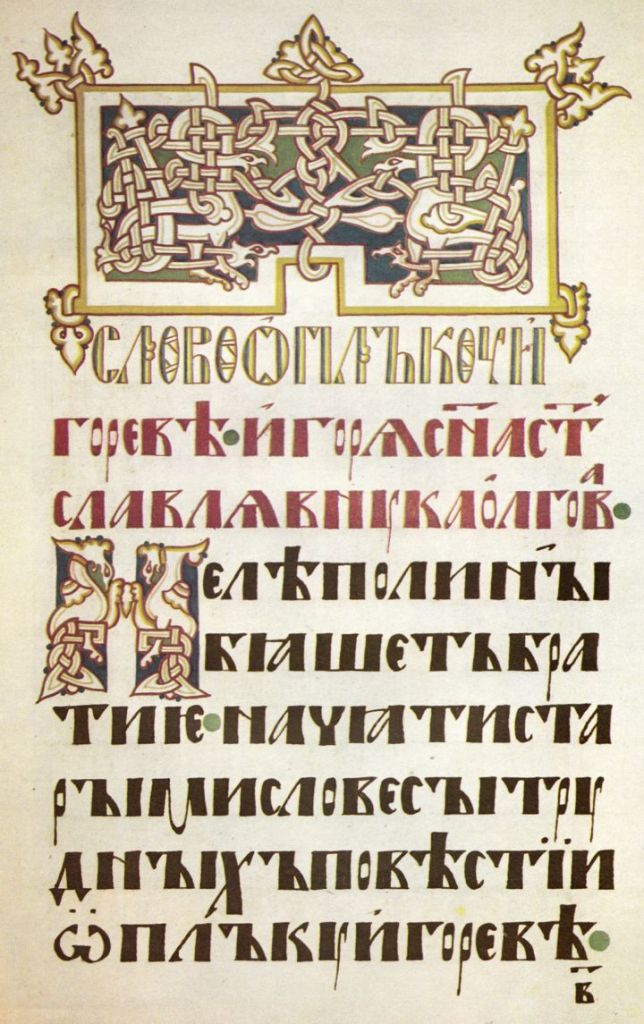 СЛОВОѠПЛЪКОУИ
ГОРЕВѢ·ИГОРѦСН҃АСТ҃
СЛАВЛѦВНꙊКАОЛГОВⷶ·
НЕЛѢПОЛИНЪІ
БꙖШЕТЬБРА
ТИѤ·НАЧꙖТИСТА
РЪІМИСЛОВЕСЪІТРꙊ
ДНЪІХЪПОВѢСТЇИ
ѠПЛЪКꙊИГОРЕВѢ·
В҃